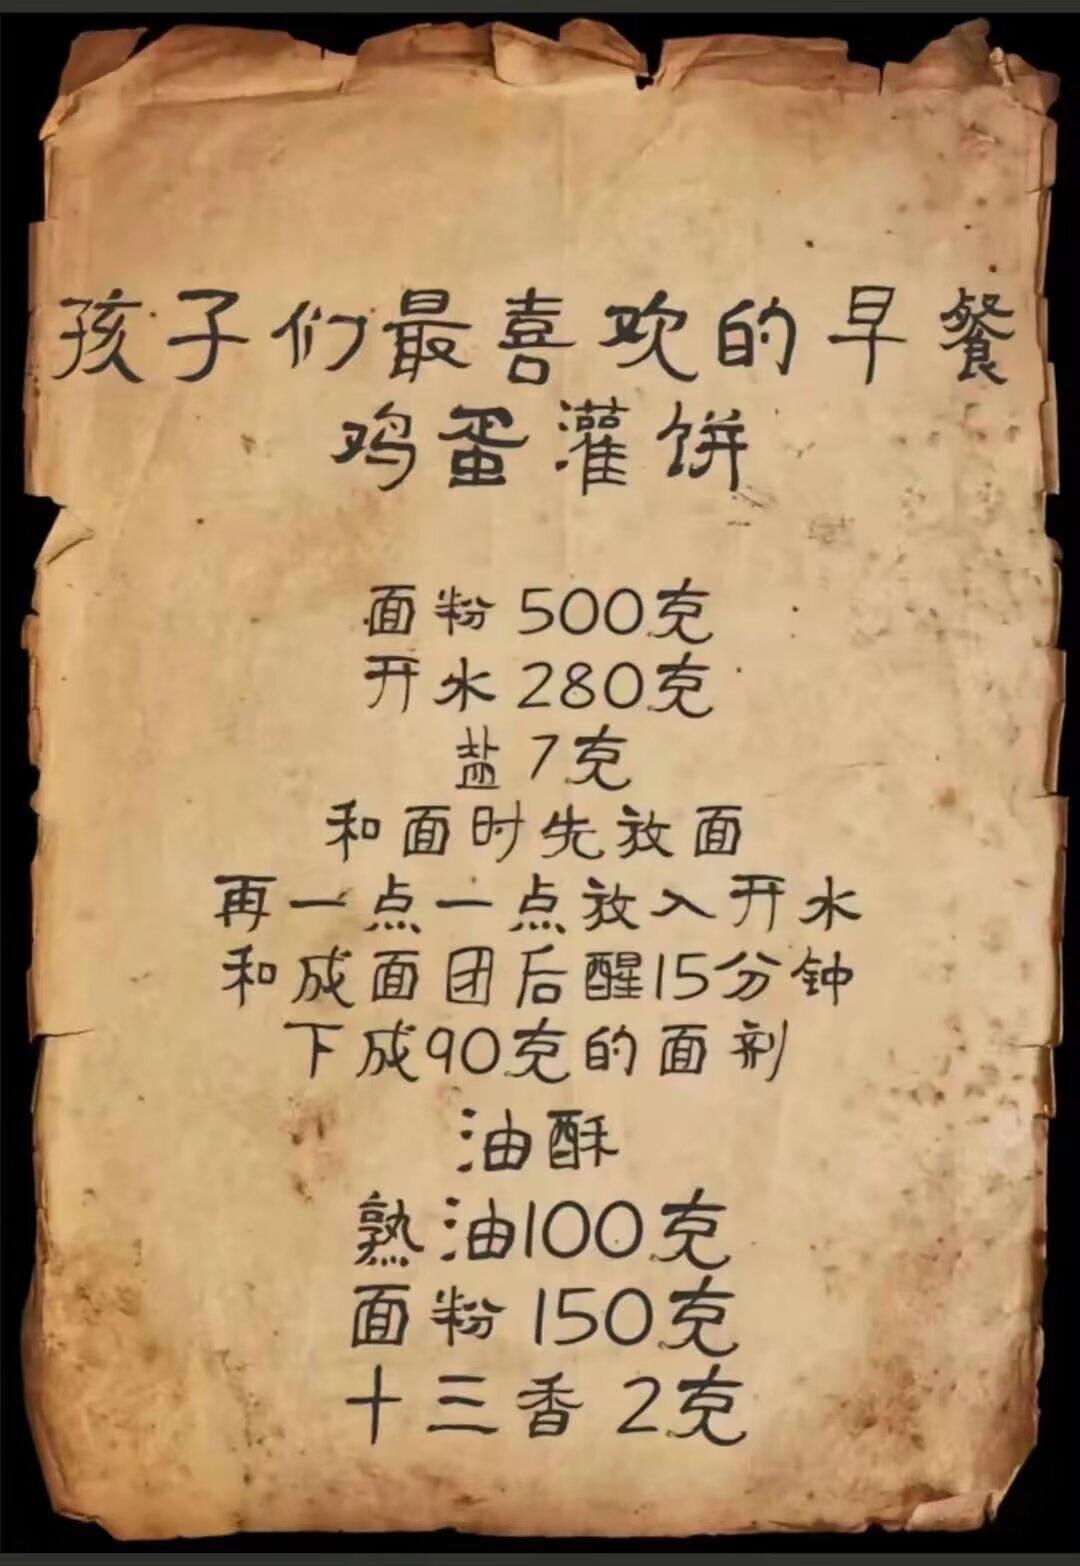 孩子们最喜欢的早餐
鸡蛋灌饼
面粉 500克
开水 280克
盐 7克
和面时先放面
再一点一点放入开水
和成面团后醒15分钟
下成90克的面剂
油酥
熟油100克
面粉 150克
十三香 2克